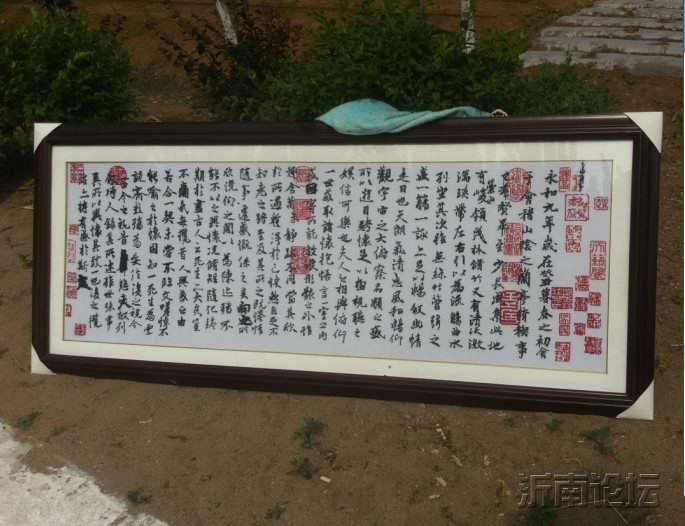 永和九年歲在癸丑暮春之初會
于會稽山陰之蘭亭脩禊事
也羣賢畢至少長咸集此地
有崇山峻領茂林脩竹又有清流激
湍暎帶左右引以為流觴曲水
列坐其次雖無絲竹管弦之
盛一觴一詠亦足以暢敘幽情
是日也天朗氣清惠風和暢仰
觀宇宙之大俯察品類之盛
所以遊目騁懷足以極視聽之
娛信可樂也夫人之相與俯仰
一世或取諸懷抱悟言一室之內
或因寄所託放浪形骸之外雖
趣舍萬殊靜躁不同當其欣
於所遇蹔得於己怏然自足不
知老之將至及其所之既惓情
隨事遷感慨係之矣向之所
欣俛仰之閒以為陳迹猶不
能不以之興懷況脩短隨化終
期於盡古人云死生亦大矣豈
不痛哉每攬昔人興感之由
若合一契未嘗不臨文嗟悼不
能喻之於懷固知一死生為虛
誕齊彭殤為妄作後之視今
亦由今之視昔悲夫故列
敘時人錄其所述雖世殊事
異所以興懷其致一也後之攬
者亦將有感於斯文
沂南论坛